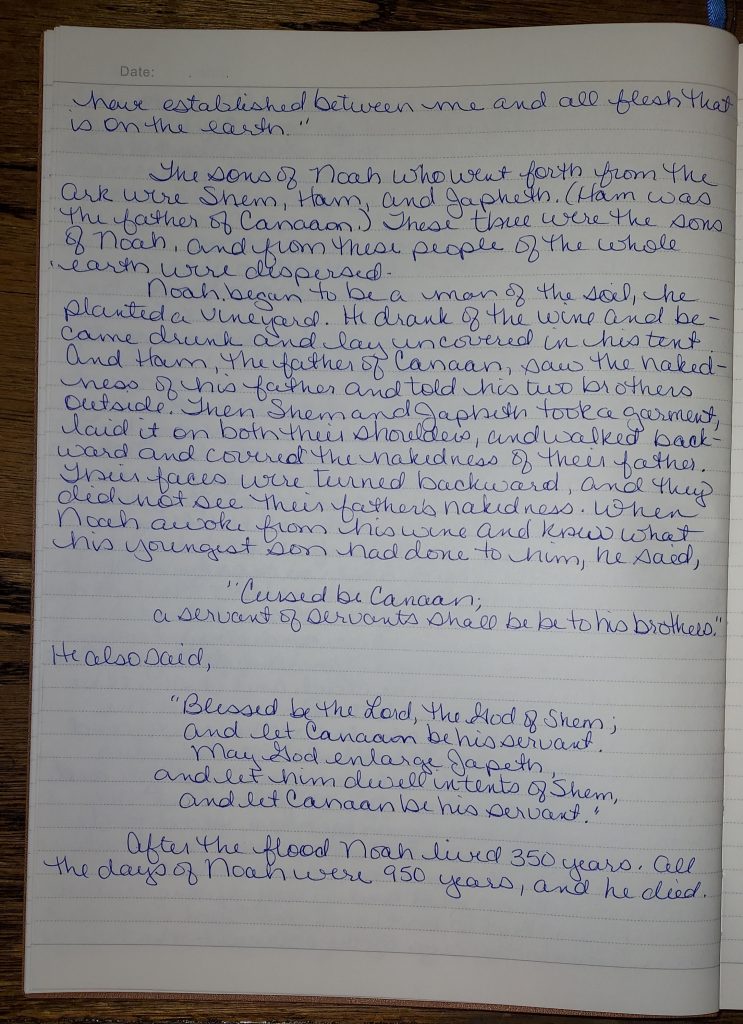 Date:
have established between me and all flesh that
is on the earth."
The sons of Noah who went forth from the
ark were Shem, Ham, and Japheth. (Ham was
the father of Canaaon.) These three were the sons
of Noah, and from these people of the whole
earth were dispersed.
Noah began to be a man of the soil, he
planted a vineyard. He drank of the wine and be-
came drunk and lay uncovered in his tent.
And Ham, the father of Canaan, saw the naked-
ness of his father and told his two brothers
outside. Then Shem and Japheth took a garment,
laid it on both their shoulders, and walked back-
ward and covered the nakedness of their father.
Their faces were turned backward, and they
did not see their father's nakedness. When
Noah awoke from his wine and knew what
his youngest son had done to him, he said,
"Cursed be Canaan;
a servant of servants shall be be to his brothers."
He also said,
"Blessed be the Lord, the God of Shem;
and let Canaaon be his servant.
May God enlarge Japeth,
and let him dwell in tents of Shem,
and let Canaan be his servant."
After the flood Noah lived 350 years. All
the days of Noah were 950 years, and he died.